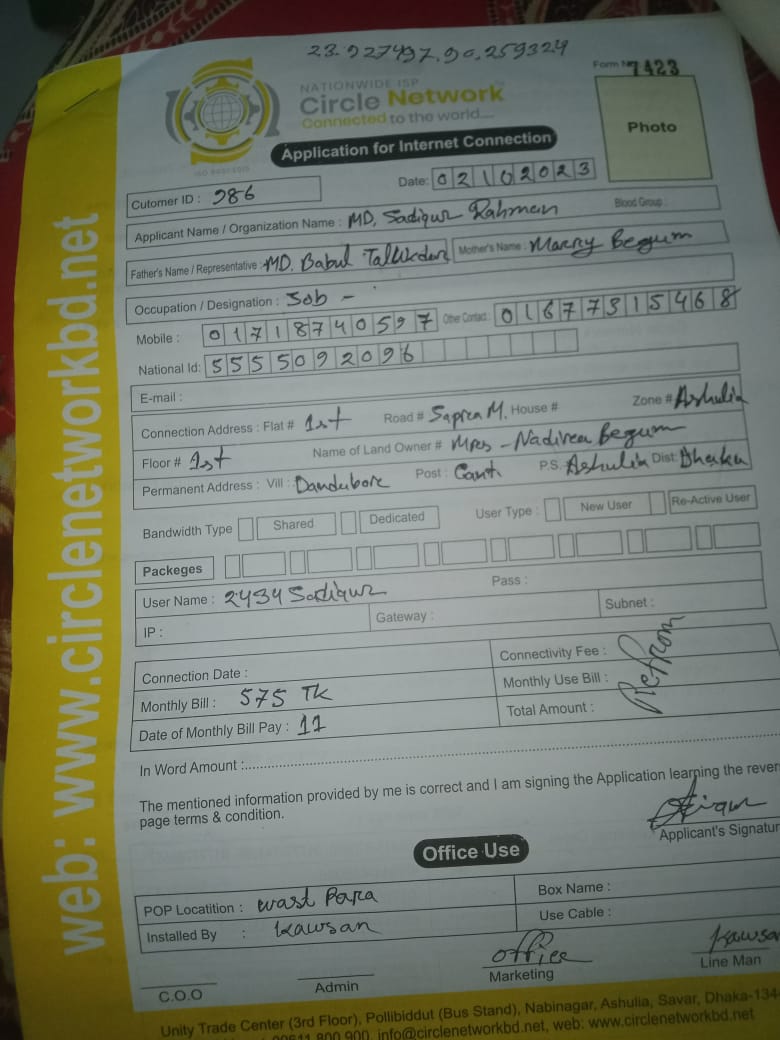 23.927497, 90.259324
Form No 7423
NATIONWIDE ISP
Circle Network
Connected to the world....
ISO 9001:2015
Photo
Application for Internet Connection
Date: 02102023
Cutomer ID : 986
Applicant Name / Organization Name : MD, Sadiqur Rahman Blood Group :
Father's Name / Representative : MD. Babul Talukder Mother's Name : Marry Begum
Occupation / Designation : Job -
Mobile : 01718740597 Other Contact : 01677315468
National Id: 5555092096
E-mail :
Connection Address : Flat # 1st Road # M. House # Zone # Ashulia
Floor # 1st Name of Land Owner # Begum
Permanent Address : Vill : Dandabore Post : Cant. P.S. Ashulia Dist: Dhaka
Bandwidth Type Shared Dedicated User Type : New User Re-Active User
Packeges
User Name : 2434 Sadiqur Pass :
IP : Gateway : Subnet :
Connection Date : Connectivity Fee :
Monthly Bill : 575 TK Monthly Use Bill :
Date of Monthly Bill Pay : 11 Total Amount :
In Word Amount :
The mentioned information provided by me is correct and I am signing the Application learning the rever
page terms & condition.
Applicant's Signatur
Office Use
POP Locatition : wast Para Box Name :
Installed By : Kawsar Use Cable :
office Kawsa
C.O.O Admin Marketing Line Man
Unity Trade Center (3rd Floor), Pollibiddut (Bus Stand), Nabinagar, Ashulia, Savar, Dhaka-134
800 900, info@circlenetworkbd.net, web: www.circlenetworkbd.net
web: www.circlenetworkbd.net